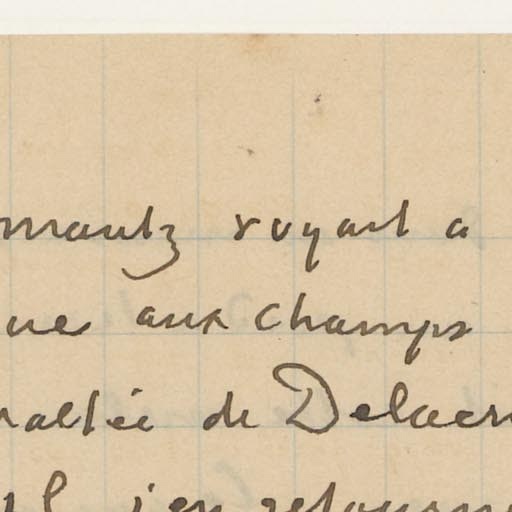 mantz voyant a
ue aux champs
altée de Delacr
il j'en retourn